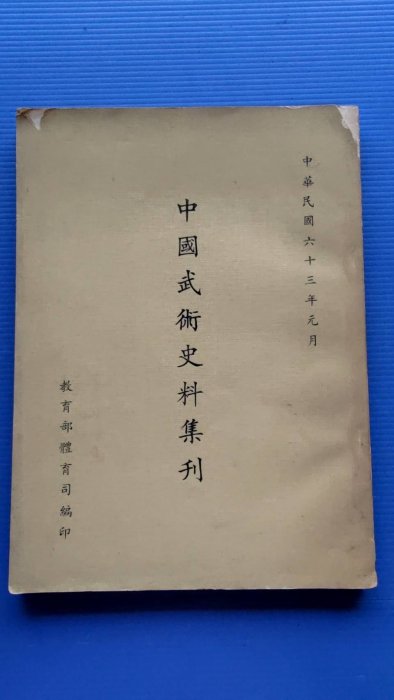 中華民國六十三年元月
中國武術史料集刊
教育部體育司編印